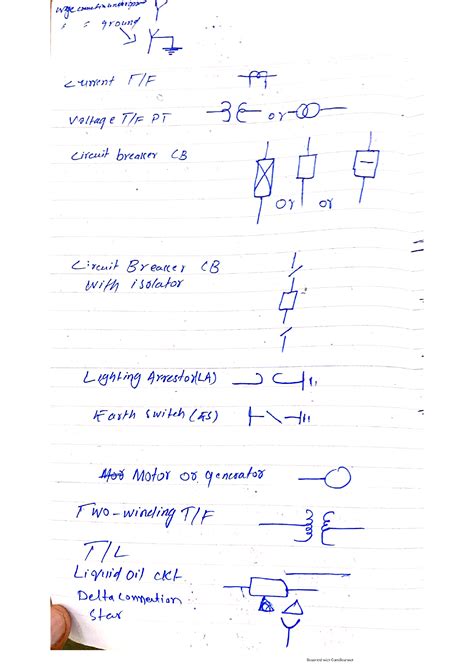 wye connection underground
" " ground
Current T/F
Voltage T/F PT or
Circuit breaker CB
or or
Circuit Breaker CB
With isolator
Lighting Arrestor(LA)
Earth Switch (ES)
Motor or generator
Two-winding T/F
T/L
Liquid Oil CKt
Delta Connection
Star